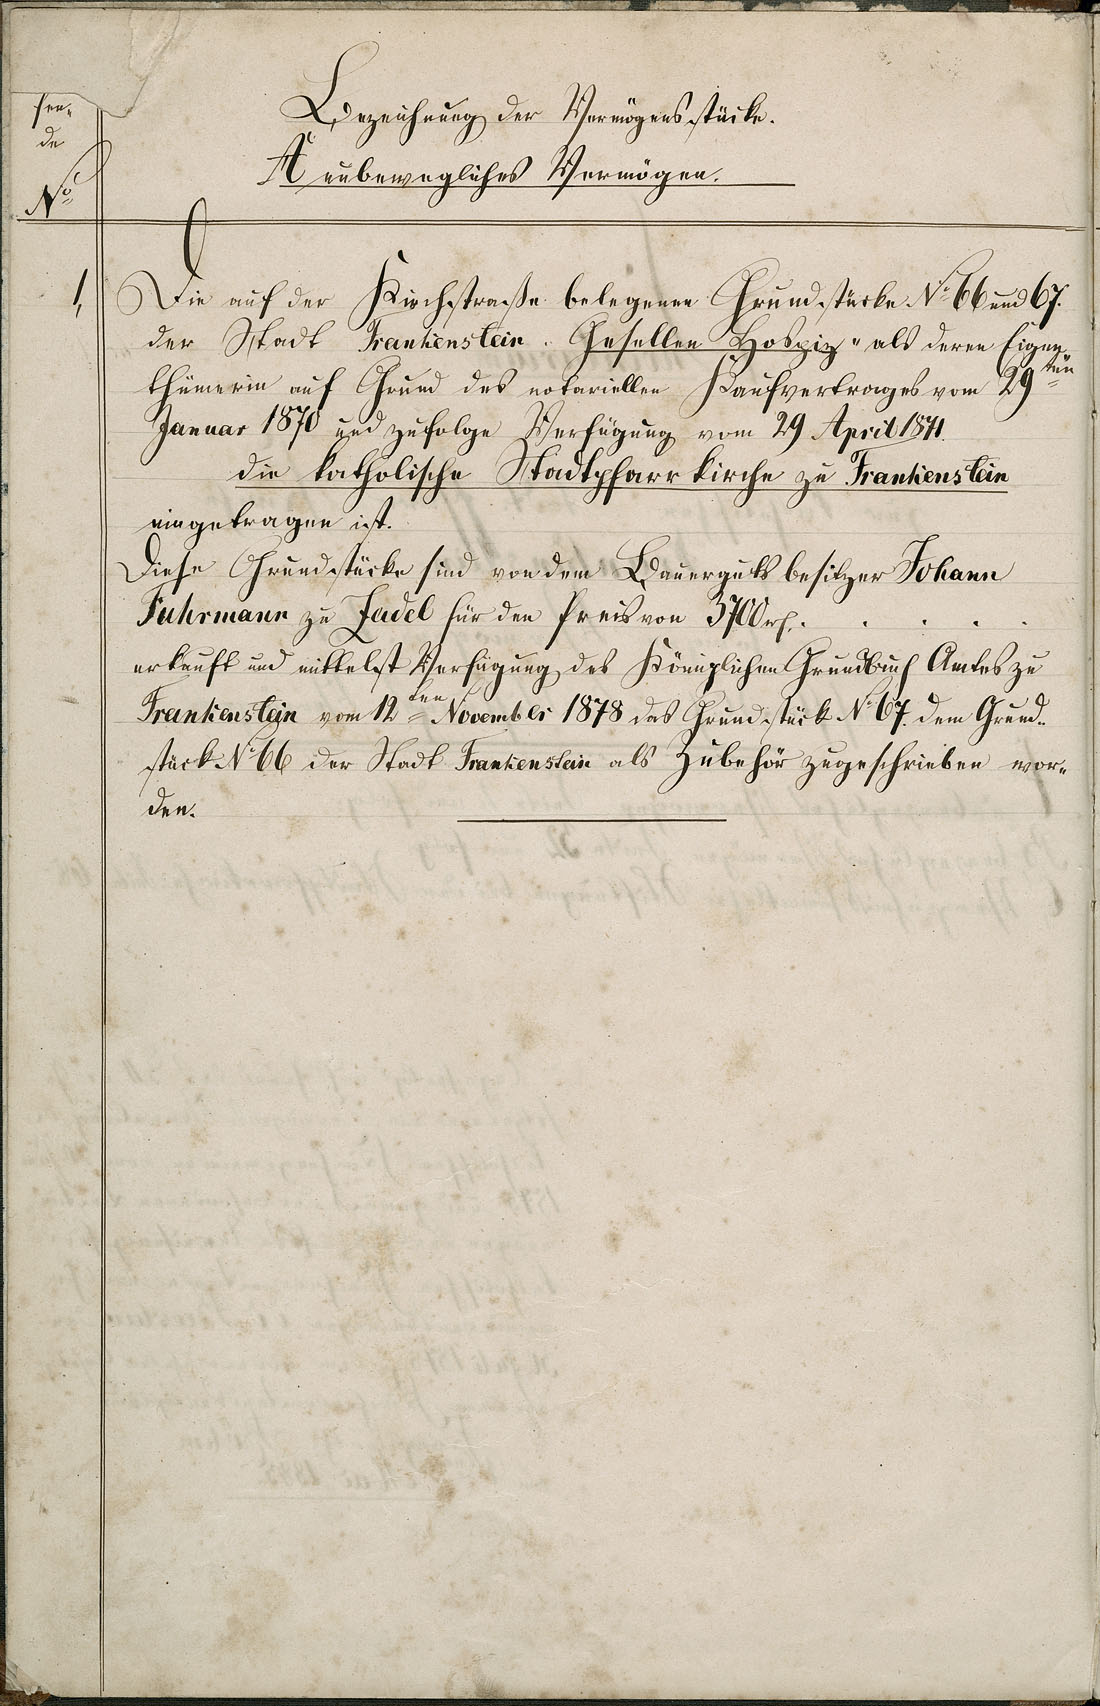 fen-
de
No
Bezeichnung der Vermögensstücke.
A unbewegliches Vermögen.
1, Die auf der Kirchstraße belegenen Grundstücke No 66 und 67.
der Stadt Frankenstein „Gesellen Hospiz“ als deren Eigen-
thümerin auf Grund des notariellen Kaufvertrages vom 29ten
Januar 1870 und zufolge Verfügung vom 29 April 1871.
die katholische Stadtpfarrkirche zu Frankenstein
eingetragen ist.
Diese Grundstücke sind von dem Bauergutsbesitzer Johann
Fuhrmann zu Zadel für den Preis von 3700 rh. . . . . .
erkauft und mittelst Verfügung des Königlichen Grundbuch Amtes zu
Frankenstein vom 12ten November 1878 das Grundstück No 67. dem Grund-
stück No 66 der Stadt Frankenstein als Zubehör zugeschrieben wor-
den.